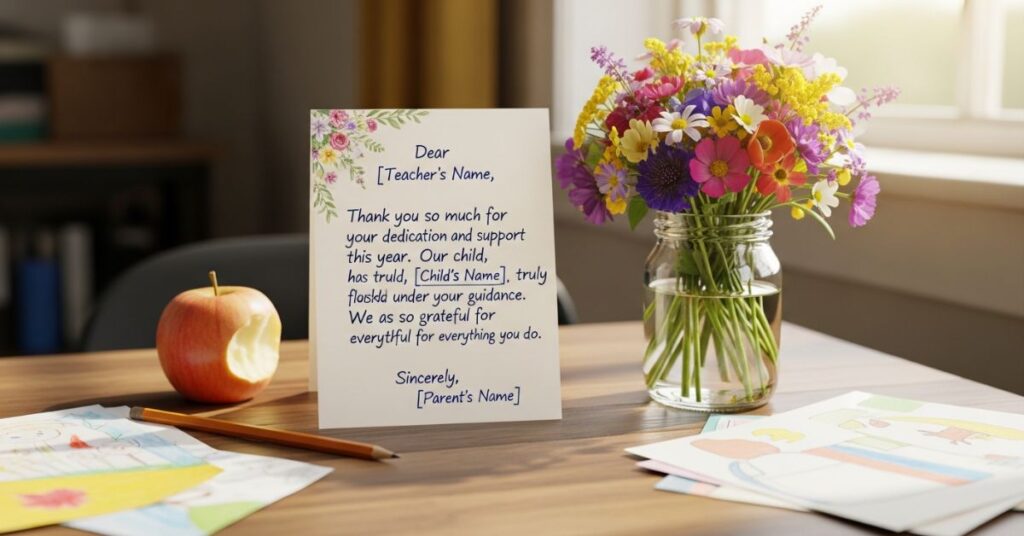 Dear
[Teacher's Name,
Thank you so much for
your dedication and support
this year. Our child,
has truld, [Child's Name], truly
under your guidance.
We as so grateful for
everytful for everything you do.
Sincerely,
[Parent's Name]